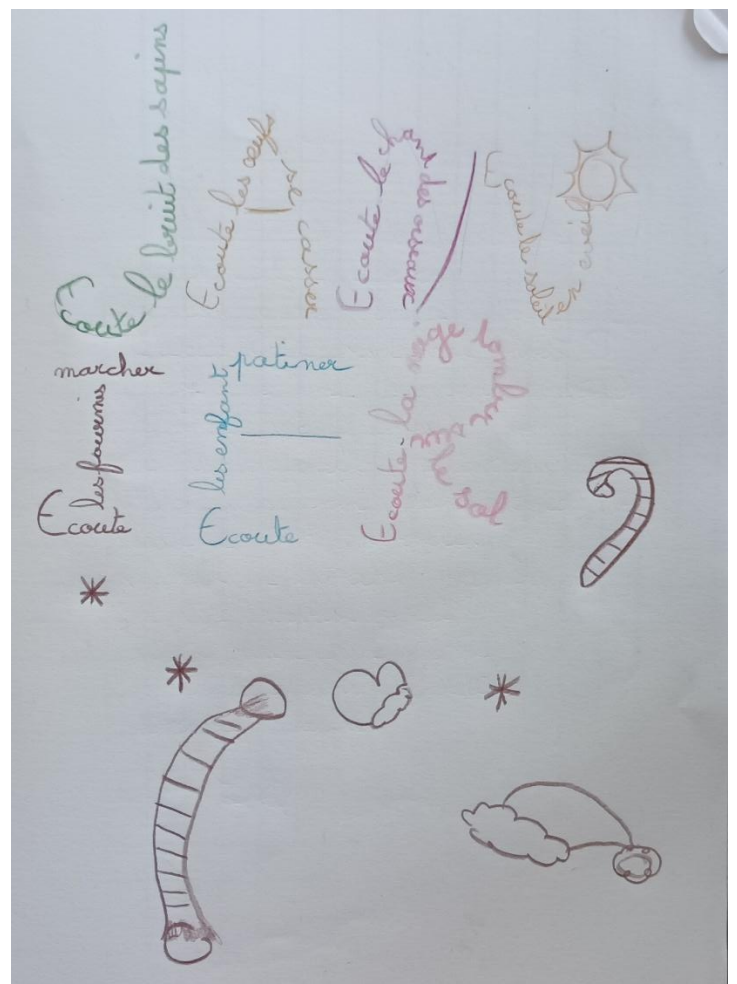 Ecoute le bruit des sapins
Ecoute les œufs se casser
Ecoute le chant des oiseaux
Ecoute le soleil
Ecoute les fourmis marcher
Ecoute les enfant patiner
Ecoute la neige tomber sur le sol